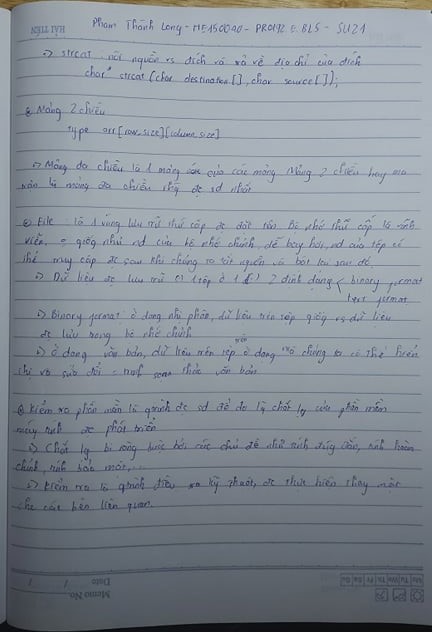 HẢI TIẾN
Phạm Thành Long - HE150040 - PRO192 E.BL5 - SU21
=> strcat : nối nguồn vs đích và trả về địa chỉ của đích
char* strcat (char destination [], char source []);
Mảng 2 chiều
Type arr[row_size][column_size]
=> Mảng đa chiều là 1 mảng của các mảng. Mảng 2 chiều hay ma
trận là mảng đa chiều đc sd nhất
File : là 1 vùng lưu trữ thứ cấp đc đặt tên. Bộ nhớ thứ cấp là vĩnh
viễn, giống như nd của bộ nhớ chính, dễ bay hơi, nd của tệp có
thể truy cập đc sau khi chúng ta tắt nguồn và bật lại sau đó.
=> Dữ liệu đc lưu trữ 1 tệp ở 1 2 định dạng < binary format
text format
=> Binary format ở dạng nhị phân, dữ liệu trên tệp giống vs dữ liệu
đc lưu trong bộ nhớ chính
=> Ở dạng văn bản, dữ liệu trên tệp ở dạng mà chúng ta có thể hiển
thị và sửa đổi = trình soạn thảo văn bản
Kiểm tra phần mềm là qtrình đc sd để đo lg chất lg của phần mềm
máy tính đc phát triển
=> Chất lg bị ràng buộc bởi các chủ đề như tính đúng đắn, tính hoàn
chỉnh, tính bảo mật,...
=> Kiểm tra là qtrình điều tra kỹ thuật, đc thực hiện thay mặt
cho các bên liên quan.
Memo No.
Date / /
Mo Tu We Th Fr Sa Su